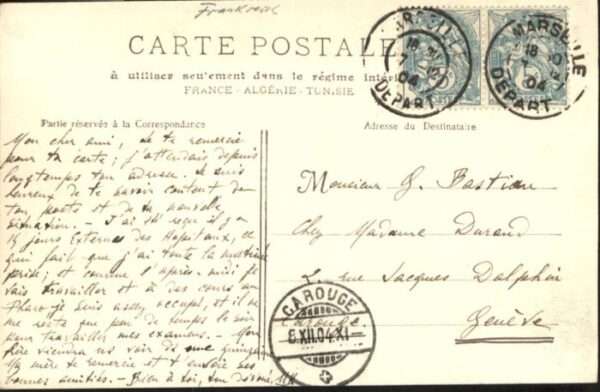 Frankreich
CARTE POSTALE
à utiliser seulement dans le régime intéri
FRANCE - ALGÉRIE - TUNISIE
MARSEILLE
18
7
12
04
DEPART
MARSEILLE
18
7
12
04
DEPART
Partie réservée à la Correspondance
Adresse du Destinataire
Mon cher ami, Je te remercie
pour ta carte; j'attendais depuis
longtemps ton adresse. Je suis
heureux de te savoir content de
ton poste et de ta nouvelle
situation. - J'ai été reçu il y a
15 jours Externe des Hôpitaux, ce
qui fait que j'ai toute la matinée
prise; et comme l'après-midi je
vais travailler et à des cours au
Pharo je suis assez occupé, et il ne
me reste que peu de temps le soir
pour travailler mes examens. - Mon
père viendra vous voir une quinzaine
Ma mère te remercie et t'envoie ses
bonnes amitiés. - Bien à toi, ton
Monsieur G. Bastian
Chez Madame Durand
2, rue Jacques Dalphin
Carouge
Genève
CAROUGE
8.XII.04.XI-